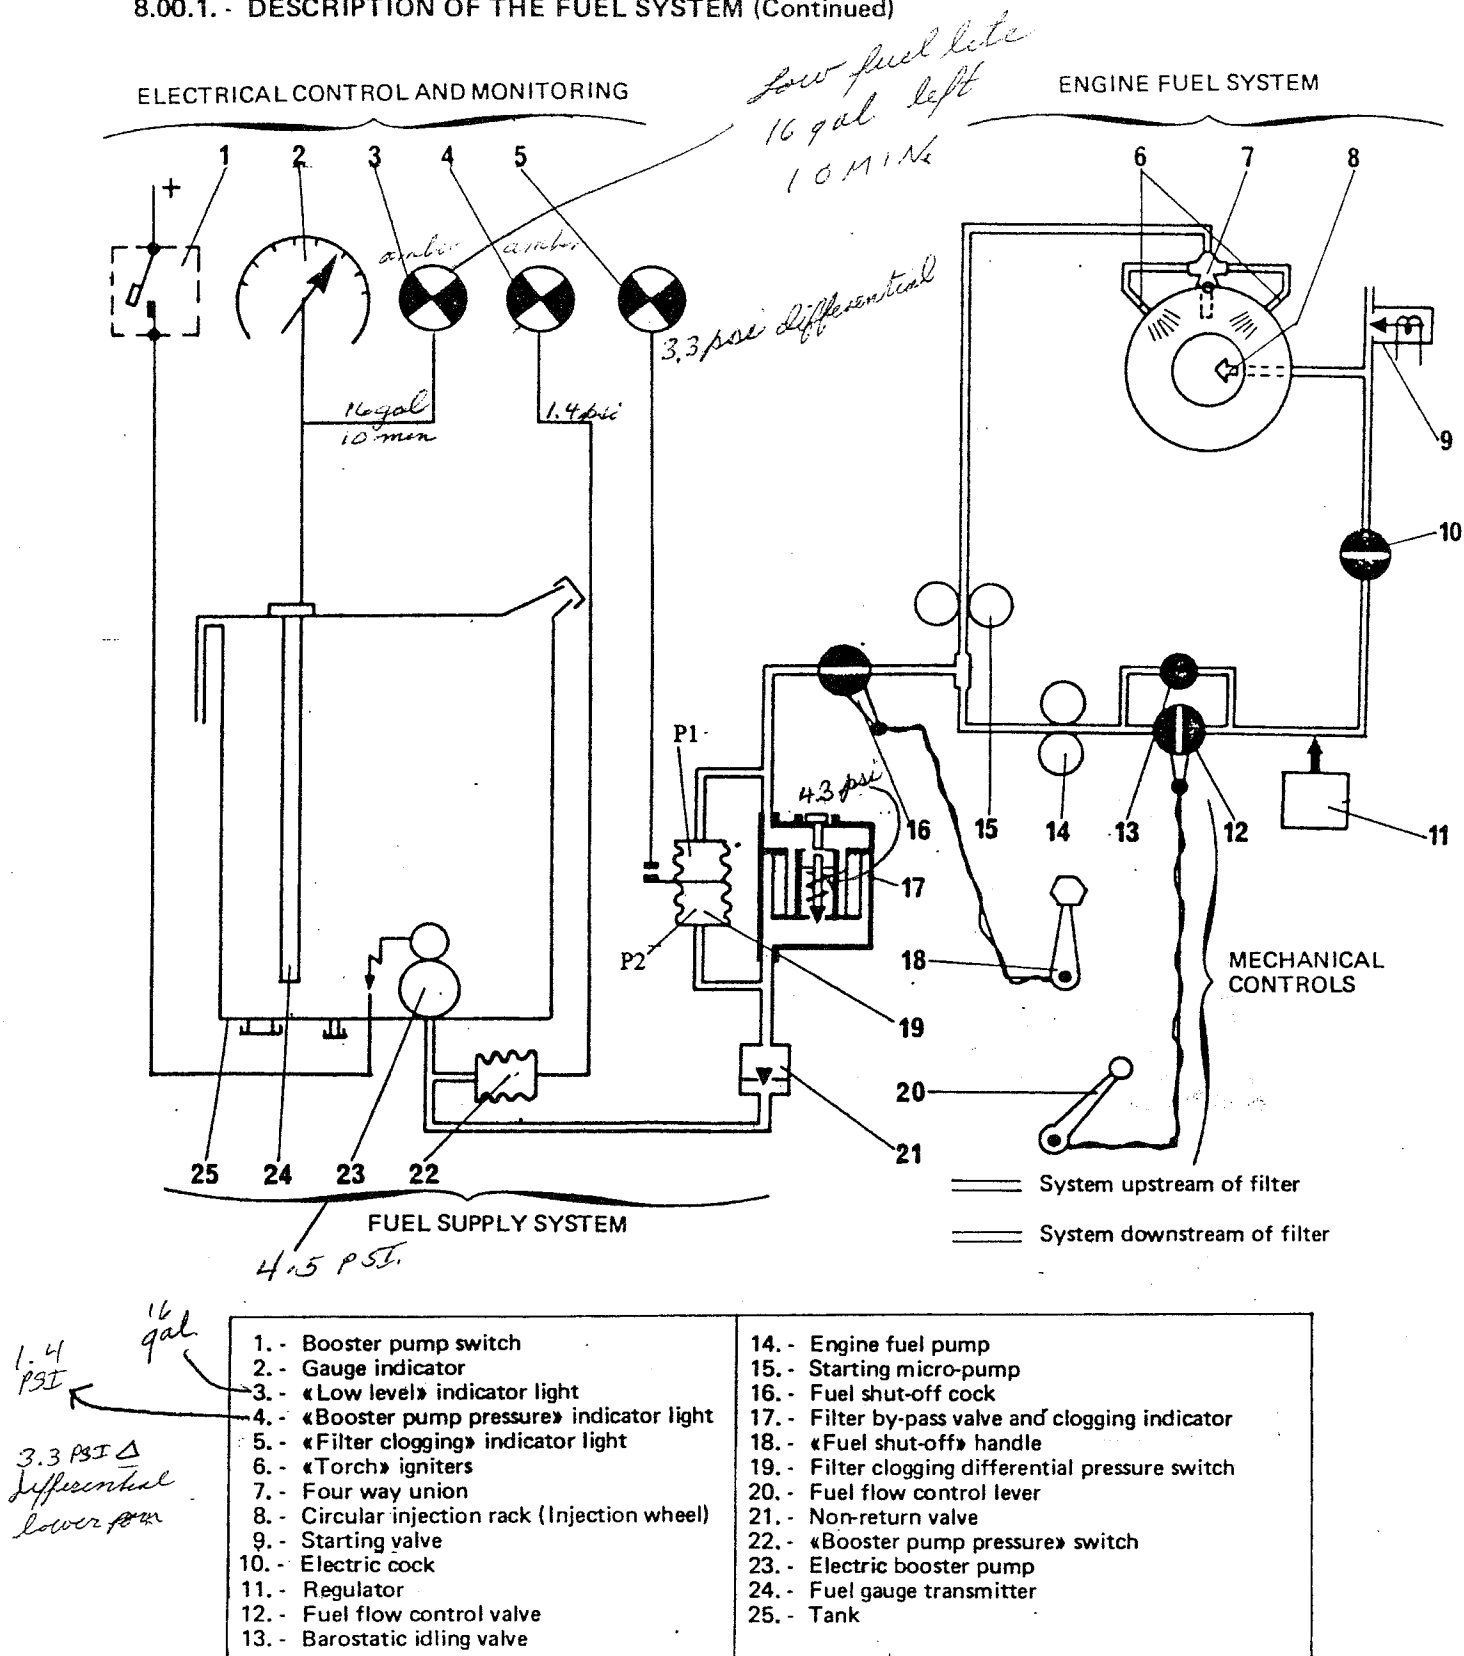 8.00.1. - DESCRIPTION OF THE FUEL SYSTEM (Continued)
Low fuel lite
16 gal left
10 MIN.
ELECTRICAL CONTROL AND MONITORING
ENGINE FUEL SYSTEM
1 2 3 4 5
6 7 8
+
amber amber
3.3 psi differential
16 gal
10 min
1.4 psi
9
10
P1
4.3 psi
16 15 14 13 12
11
17
P2
18
MECHANICAL
CONTROLS
19
20
21
25 24 23 22
System upstream of filter
FUEL SUPPLY SYSTEM
System downstream of filter
4.5 PSI.
16
gal.
1.4
PSI
3.3 PSI Δ
differential
lower
1. - Booster pump switch
2. - Gauge indicator
3. - «Low level» indicator light
4. - «Booster pump pressure» indicator light
5. - «Filter clogging» indicator light
6. - «Torch» igniters
7. - Four way union
8. - Circular injection rack (Injection wheel)
9. - Starting valve
10. - Electric cock
11. - Regulator
12. - Fuel flow control valve
13. - Barostatic idling valve
14. - Engine fuel pump
15. - Starting micro-pump
16. - Fuel shut-off cock
17. - Filter by-pass valve and clogging indicator
18. - «Fuel shut-off» handle
19. - Filter clogging differential pressure switch
20. - Fuel flow control lever
21. - Non-return valve
22. - «Booster pump pressure» switch
23. - Electric booster pump
24. - Fuel gauge transmitter
25. - Tank